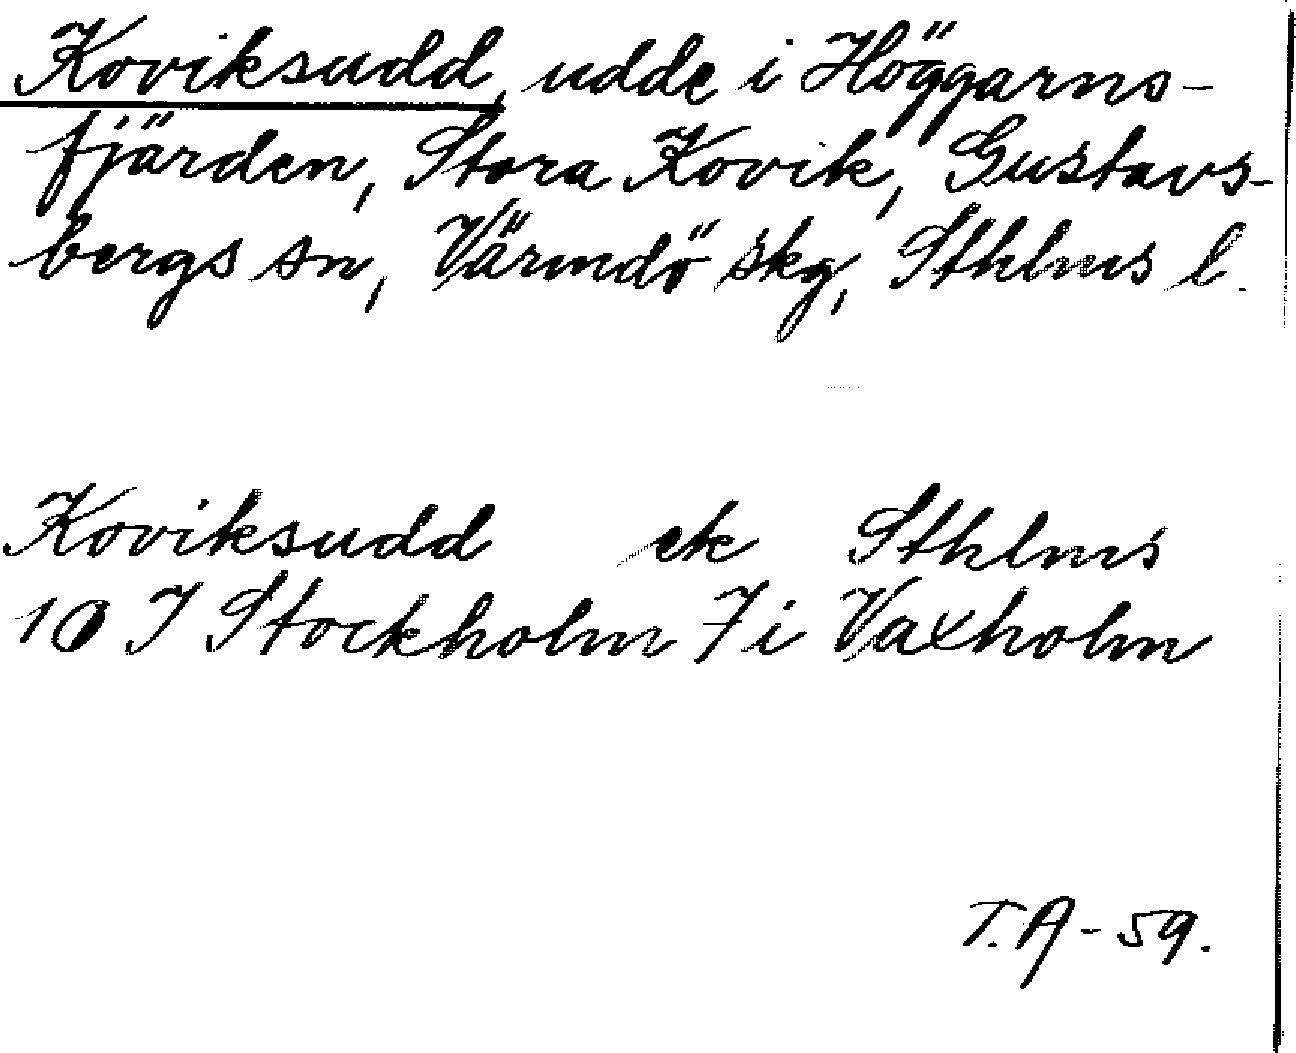 Koviksudd, udde i Höggarns-
fjärden, Stora Kovik, Gustavs-
bergs sn, Värmdö skg, Sthlms l.
Koviksudd ek Sthlms
10 I Stockholm 7 i Vaxholm
T.A - 59.